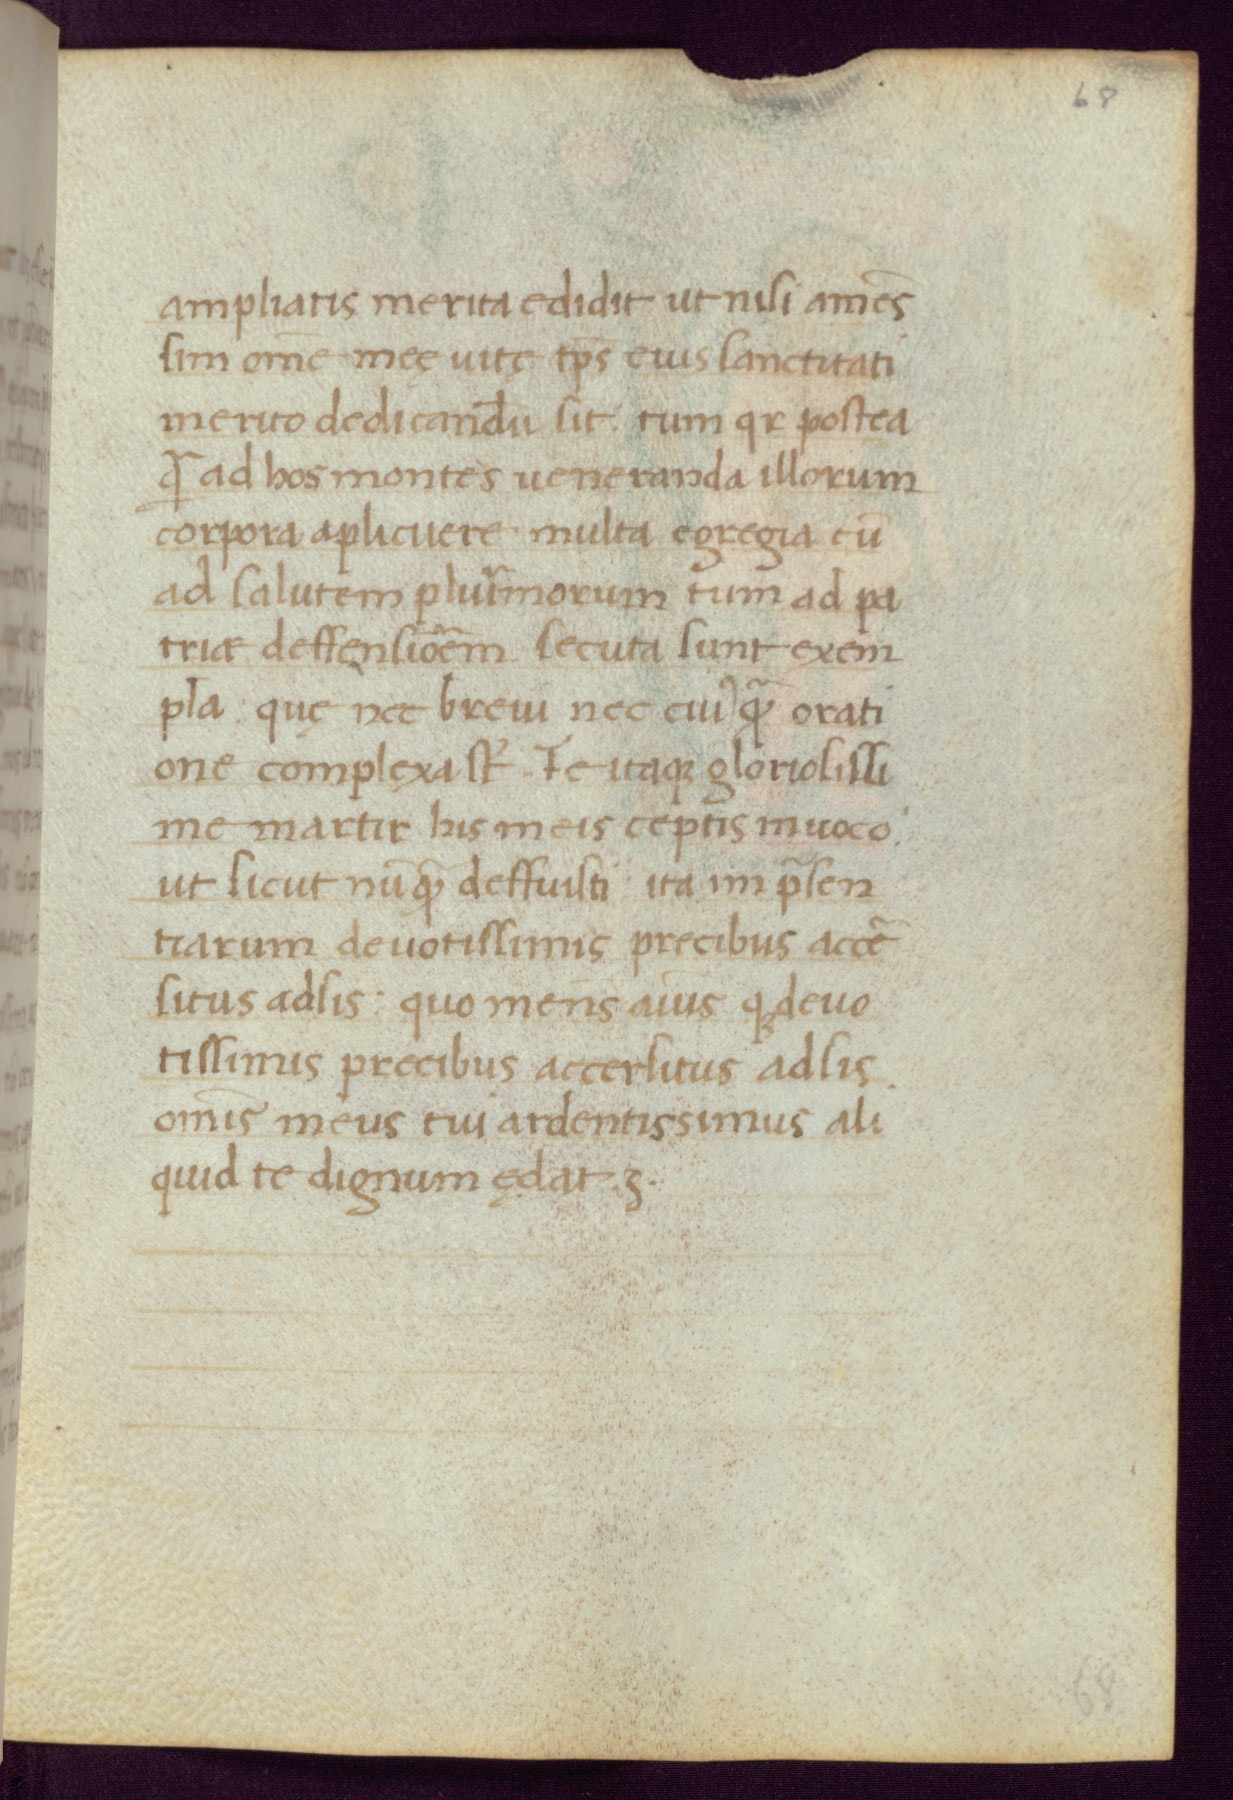 68
ampliatis merita edidit ut nisi amēs
sim om̄e meę uitę tp̄s eius sanctitati
merito dedicandū sit. tum qꝛ postea
ꝙ ad hos montes ueneranda illorum
corpora aplicuere multa egregia cū
ad salutem plurīmorum tum ad pa
triæ deffensiōem secuta sunt exem
pla: quę nec breui nec cuiꝰq̃ orati
one complexa st̄. Te itaqꝫ gloriosissi
me martir his meis ceptis inuoco.
ut sicut nūq̃ deffuisti: ita in p̃sen
tiarum deuotissimis precibus accẽ
situs adsis: quo mens aīus qꝫ deuo
tissimus precibus accersitus adsis.
om̄is meus tui ardentissimus ali
quid te dignum ędat.ꝫ.
68